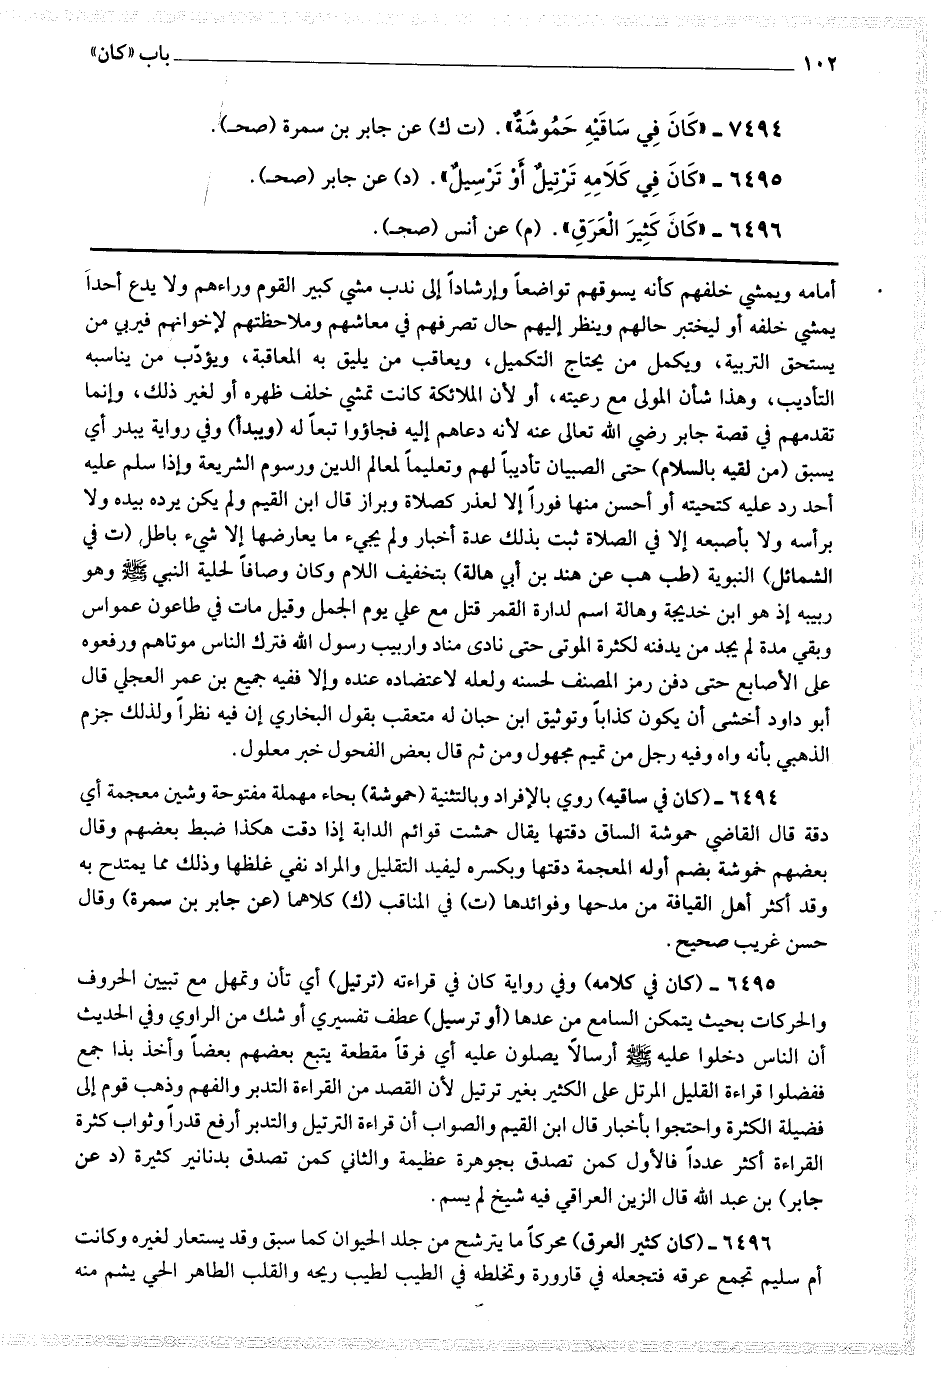 ١٠٢ باب «كان»
٧٤٩٤ ـ «كَانَ فِي سَاقَيْهِ حَمُوشَةٌ». (ت ك) عن جابر بن سمرة (صحـ).
٦٤٩٥ ـ «كَانَ فِي كَلَامِهِ تَرْتِيلٌ أَوْ تَرْسِيلٌ». (د) عن جابر (صحـ).
٦٤٩٦ ـ «كَانَ كَثِيرَ الْعَرَقِ». (م) عن أنس (صحـ).
أمامه ويمشي خلفهم كأنه يسوقهم تواضعاً وإرشاداً إلى ندب مشي كبير القوم وراءهم ولا يدع أحداً
يمشي خلفه أو ليختبر حالهم وينظر إليهم حال تصرفهم في معاشهم وملاحظتهم لإخوانهم فيربي من
يستحق التربية، ويكمل من يحتاج التكميل، ويعاقب من يليق به المعاقبة، ويؤدّب من يناسبه
التأديب، وهذا شأن المولى مع رعيته، أو لأن الملائكة كانت تمشي خلف ظهره أو لغير ذلك، وإنما
تقدمهم في قصة جابر رضي الله تعالى عنه لأنه دعاهم إليه فجاؤوا تبعاً له (ويبدأ) وفي رواية يبدر أي
يسبق (من لقيه بالسلام) حتى الصبيان تأديباً لهم وتعليماً لمعالم الدين ورسوم الشريعة وإذا سلم عليه
أحد رد عليه كتحيته أو أحسن منها فوراً إلا لعذر كصلاة وبراز قال ابن القيم ولم يكن يرده بيده ولا
برأسه ولا بأصبعه إلا في الصلاة ثبت بذلك عدة أخبار ولم يجيء ما يعارضها إلا شيء باطل (ت في
الشمائل) النبوية (طب هب عن هند بن أبي هالة) بتخفيف اللام وكان وصافاً لحلية النبي ﷺ وهو
ربيبه إذ هو ابن خديجة وهالة اسم لدارة القمر قتل مع علي يوم الجمل وقيل مات في طاعون عمواس
وبقي مدة لم يجد من يدفنه لكثرة الموتى حتى نادى مناد واربيب رسول الله فترك الناس موتاهم ورفعوه
على الأصابع حتى دفن رمز المصنف لحسنه ولعله لاعتضاده عنده وإلا ففيه جميع بن عمر العجلي قال
أبو داود أخشى أن يكون كذاباً وتوثيق ابن حبان له متعقب بقول البخاري إن فيه نظراً ولذلك جزم
الذهبي بأنه واه وفيه رجل من تميم مجهول ومن ثم قال بعض الفحول خبر معلول.
٦٤٩٤ ـ (كان في ساقيه) روي بالإفراد وبالتثنية (حموشة) بحاء مهملة مفتوحة وشين معجمة أي
دقة قال القاضي حموشة الساق دقتها يقال حمشت قوائم الدابة إذا دقت هكذا ضبط بعضهم وقال
بعضهم خموشة بضم أوله المعجمة دقتها وبكسره ليفيد التقليل والمراد نفي غلظها وذلك مما يمتدح به
وقد أكثر أهل القيافة من مدحها وفوائدها (ت) في المناقب (ك) كلاهما (عن جابر بن سمرة) وقال
حسن غريب صحيح.
٦٤٩٥ ـ (كان في كلامه) وفي رواية كان في قراءته (ترتيل) أي تأن وتمهل مع تبيين الحروف
والحركات بحيث يتمكن السامع من عدها (أو ترسيل) عطف تفسيري أو شك من الراوي وفي الحديث
أن الناس دخلوا عليه ﷺ أرسالاً يصلون عليه أي فرقاً مقطعة يتبع بعضهم بعضاً وأخذ بذا جمع
ففضلوا قراءة القليل المرتل على الكثير بغير ترتيل لأن القصد من القراءة التدبر والفهم وذهب قوم إلى
فضيلة الكثرة واحتجوا بأخبار قال ابن القيم والصواب أن قراءة الترتيل والتدبر أرفع قدراً وثواب كثرة
القراءة أكثر عدداً فالأول كمن تصدق بجوهرة عظيمة والثاني كمن تصدق بدنانير كثيرة (د عن
جابر) بن عبد الله قال الزين العراقي فيه شيخ لم يسم.
٦٤٩٦ ـ (كان كثير العرق) محركاً ما يترشح من جلد الحيوان كما سبق وقد يستعار لغيره وكانت
أم سليم تجمع عرقه فتجعله في قارورة وتخلطه في الطيب لطيب ريحه والقلب الطاهر الحي يشم منه